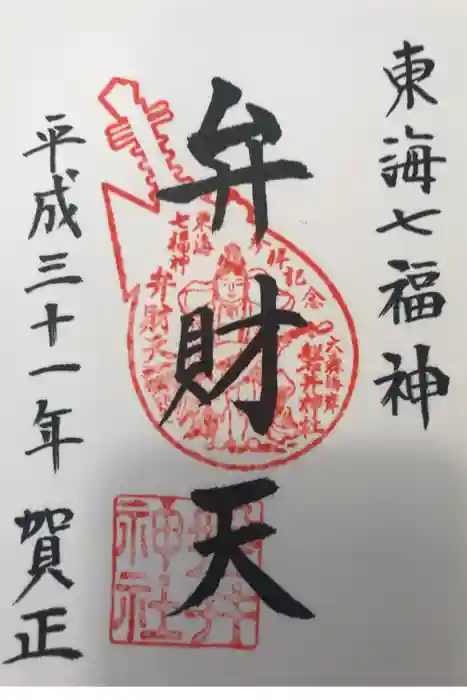 東海七福神
弁財天
平成三十一年 賀正
東海
七福神
弁財天
参拝記念
大森海岸
磐井神社
磐井
神社